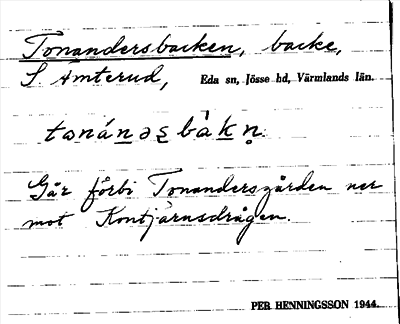 Tonandersbacken, backe,
S Åmterud, Eda sn, Jösse hd, Värmlands län.
tonánəs bàkn̥.
Går förbi Tonandersgården ner
mot Kontjärnsdrågen.
PER HENNINGSSON 1944.